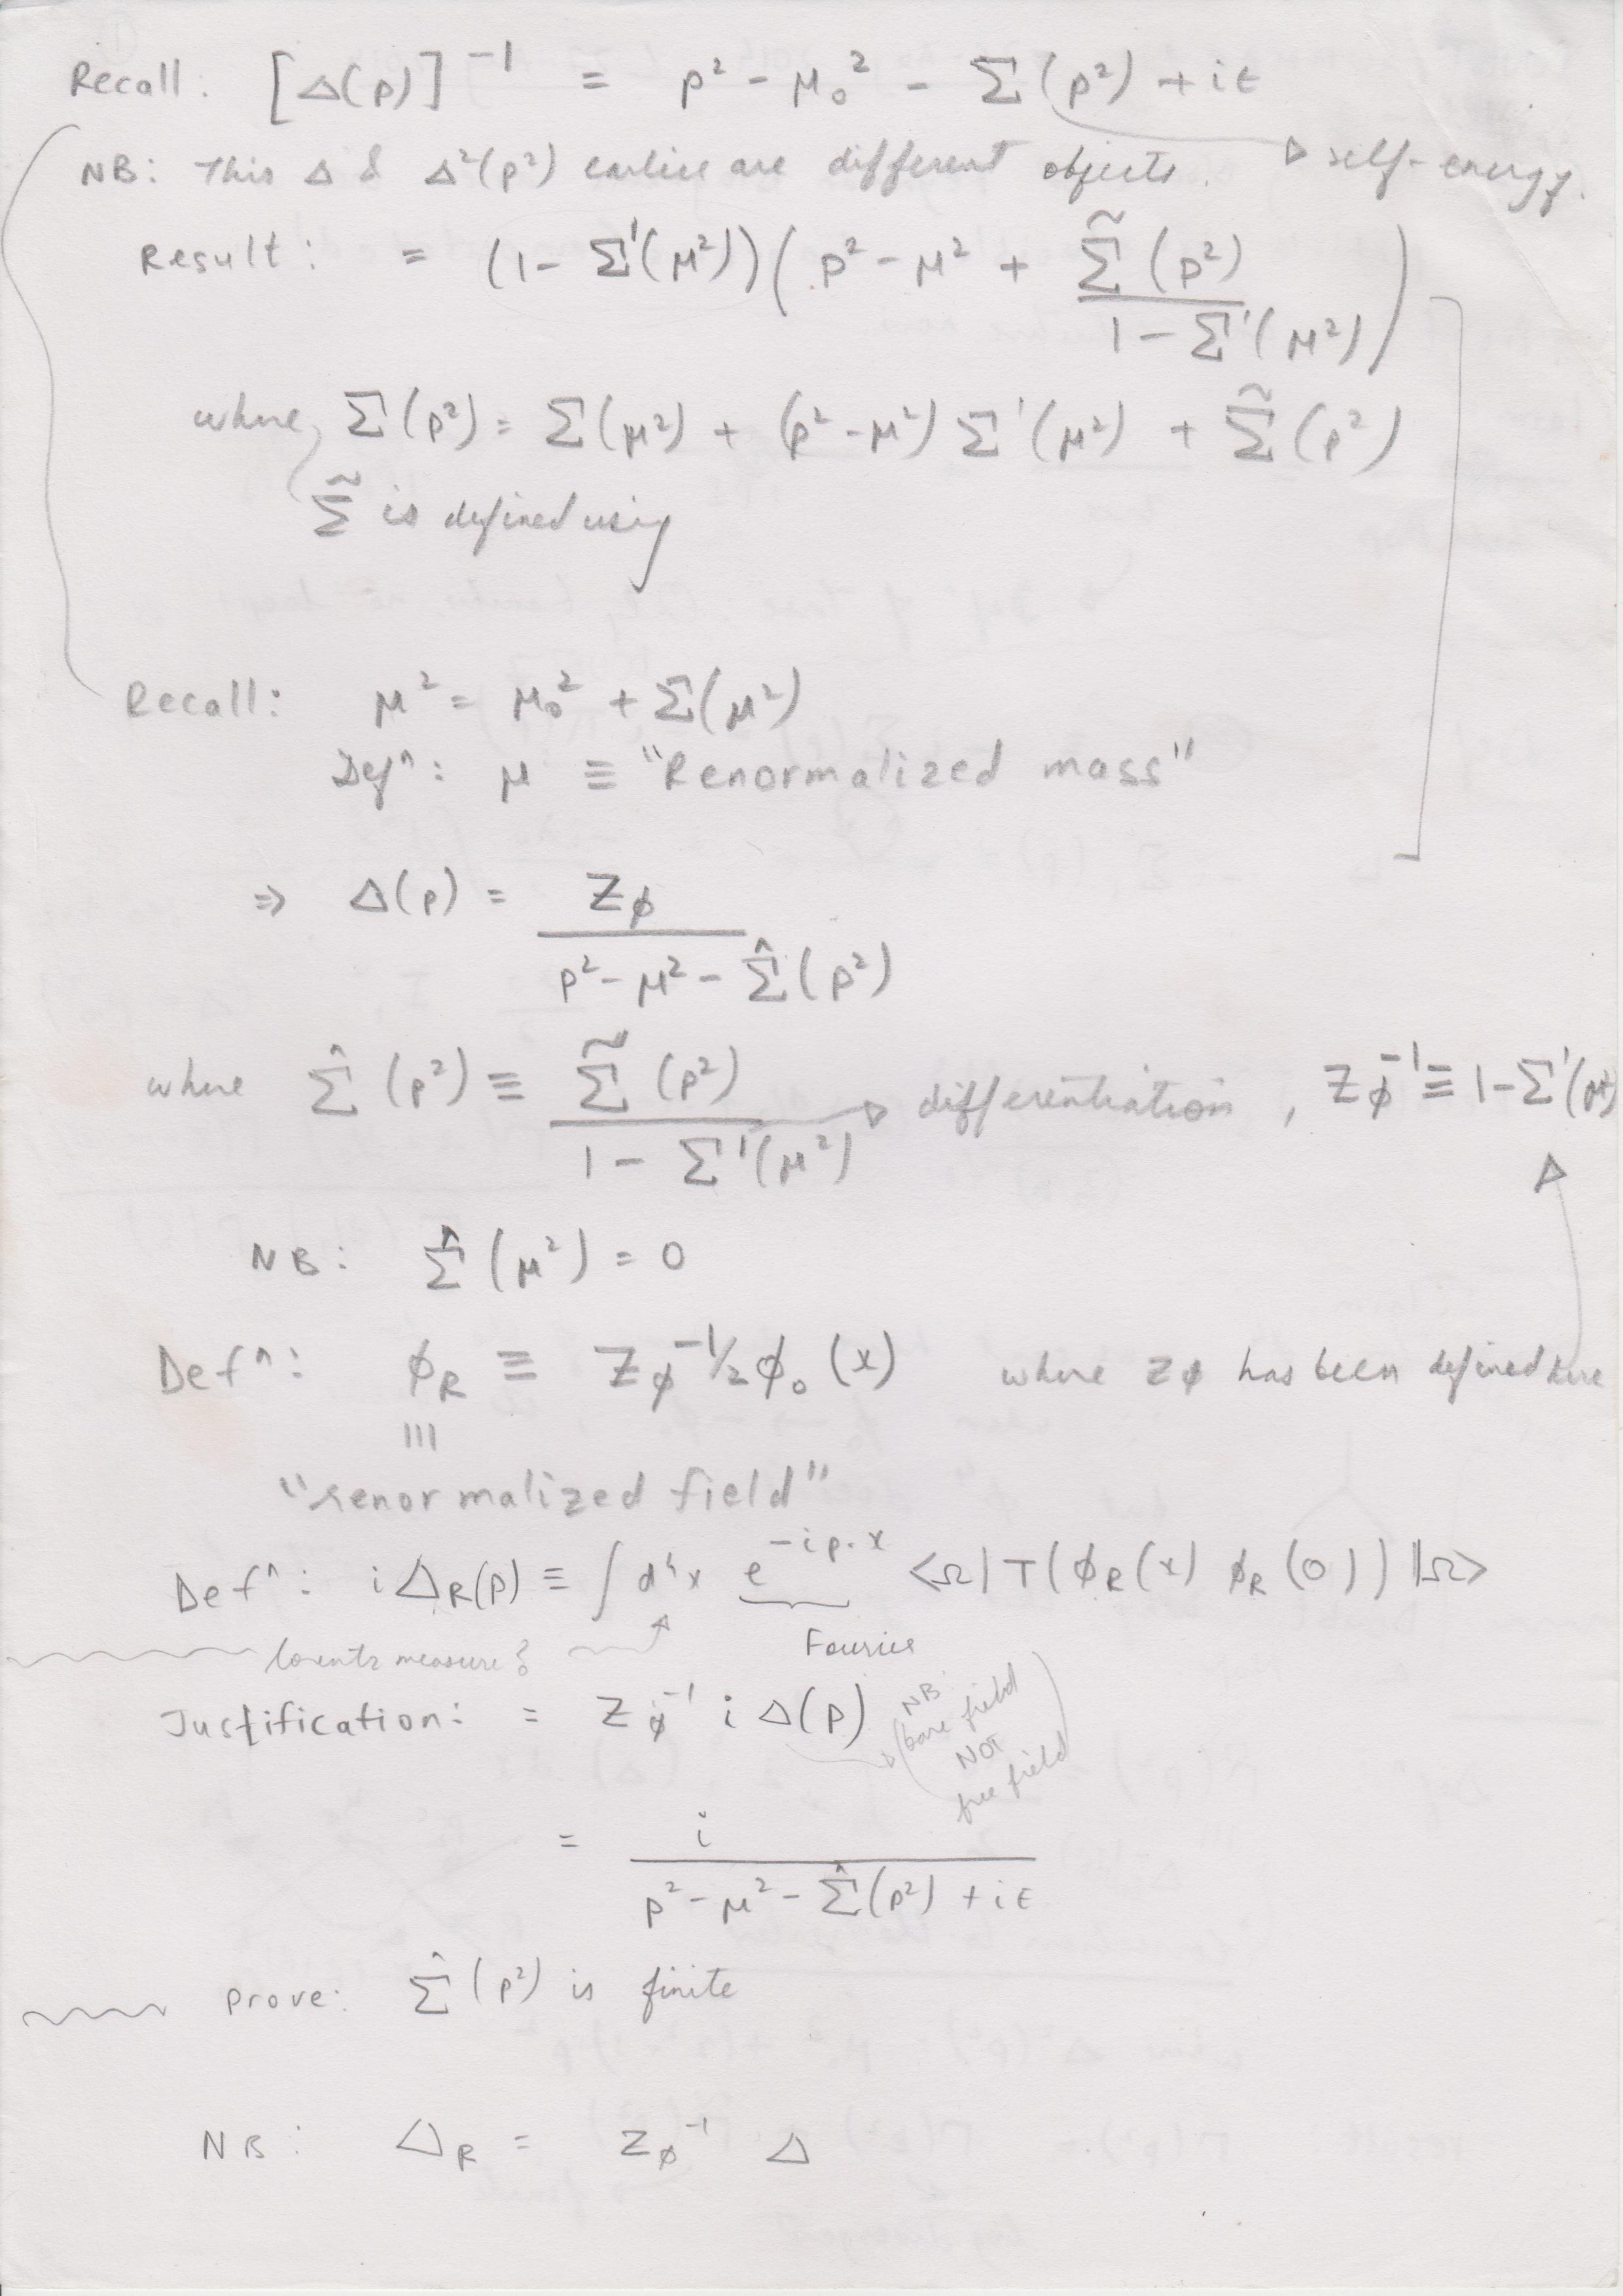 Recall: [Δ(p)]⁻¹ = p² - μ₀² - Σ(p²) + iε
NB: This Δ & Δ²(p²) earlier are different objects. ▷ self-energy.
Result: = (1- Σ'(μ²))( p² - μ² + Σ̃(p²) / 1 - Σ'(μ²) )
where, Σ(p²) = Σ(μ²) + (p² - μ²) Σ'(μ²) + Σ̃(p²)
Σ̃ is defined using
Recall: μ² = μ₀² + Σ(μ²)
Defⁿ: μ ≡ "Renormalized mass"
⇒ Δ(p) = Zϕ / p² - μ² - Σ̂(p²)
where Σ̂(p²) ≡ Σ̃(p²) / 1 - Σ'(μ²) ▷ differentiation, Zϕ⁻¹ ≡ 1 - Σ'(μ²)
NB: Σ̂(μ²) = 0
Defⁿ: ϕ_R ≡ Zϕ^-1/2 ϕ₀(x) where Zϕ has been defined here
|||
"renormalized field"
Defⁿ: i Δ_R(p) ≡ ∫ d⁴x e^-ip.x <Ω| T(ϕ_R(x) ϕ_R(0)) |Ω>
Lorentz measure? Fourier
Justification: = Zϕ⁻¹ i Δ(p)
NB
bare field
NOT
free field
= i / p² - μ² - Σ̂(p²) + iε
Prove: Σ̂(p²) is finite
NB: Δ_R = Zϕ⁻¹ Δ